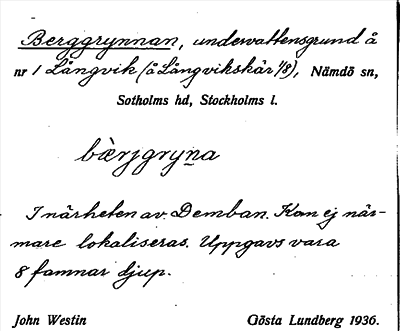 Berggrynnan, undervattensgrund å
nr 1 Långvik (å Långvikskär 1/8), Nämdö sn,
Sotholms hd, Stockholms l.
bærjgryna
I närheten av Demban. Kan ej när-
mare lokaliseras. Uppgavs vara
8 famnar djup.
John Westin Gösta Lundberg 1936.